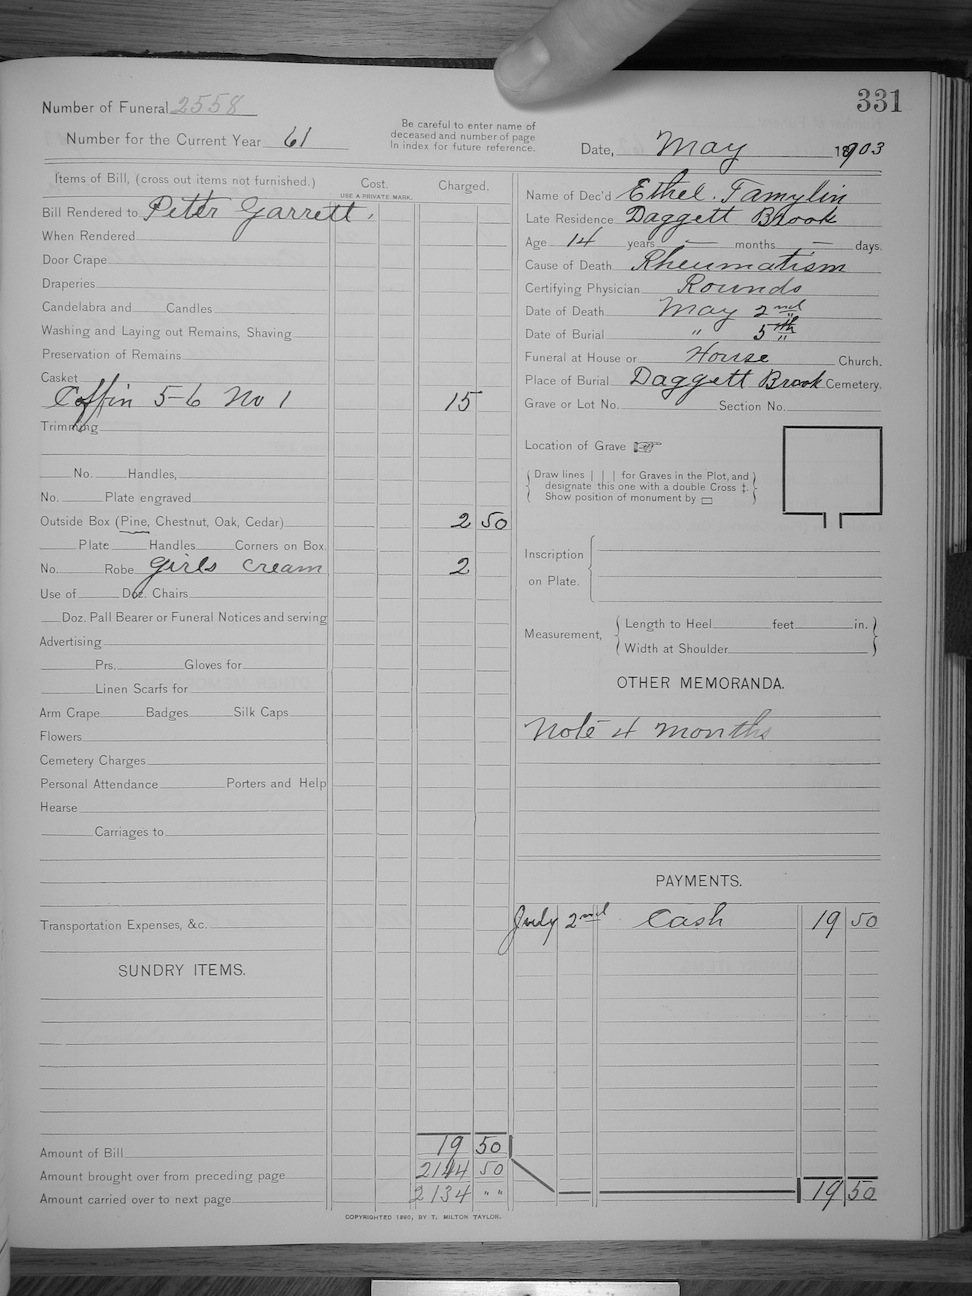 331
Number of Funeral 2558
Number for the Current Year 61
Be careful to enter name of
deceased and number of page
In index for future reference.
Date, May 1903
Items of Bill, (cross out items not furnished.)
Cost.
USE A PRIVATE MARK.
Charged.
Bill Rendered to Peter Garrett.
When Rendered
Door Crape
Draperies
Candelabra and Candles
Washing and Laying out Remains, Shaving
Preservation of Remains
Casket
Coffin 5-6 No 1 15
Trimming
No. Handles,
No. Plate engraved
Outside Box (Pine, Chestnut, Oak, Cedar) 2 50
Plate Handles Corners on Box
No. Robe girls cream 2
Use of Doz. Chairs
Doz. Pall Bearer or Funeral Notices and serving
Advertising
Prs. Gloves for
Linen Scarfs for
Arm Crape Badges Silk Caps
Flowers
Cemetery Charges
Personal Attendance Porters and Help
Hearse
Carriages to
Transportation Expenses, &c.
SUNDRY ITEMS.
Amount of Bill 19 50
Amount brought over from preceding page 50
Amount carried over to next page 2134 " "
Name of Dec'd Ethel. Tamylin
Late Residence Daggett Brook
Age 14 years — months — days.
Cause of Death Rheumatism
Certifying Physician Rounds
Date of Death May 2nd
Date of Burial " 5th "
Funeral at House or House Church.
Place of Burial Daggett Brook Cemetery.
Grave or Lot No. Section No.
Location of Grave
Draw lines | | | for Graves in the Plot, and
designate this one with a double Cross ‡.
Show position of monument by ▭
Inscription
on Plate.
Measurement,
Length to Heel feet in.
Width at Shoulder
OTHER MEMORANDA.
Note 4 months
PAYMENTS.
July 2nd Cash 19 50
19 50
COPYRIGHTED 1890, BY T. MILTON TAYLOR.